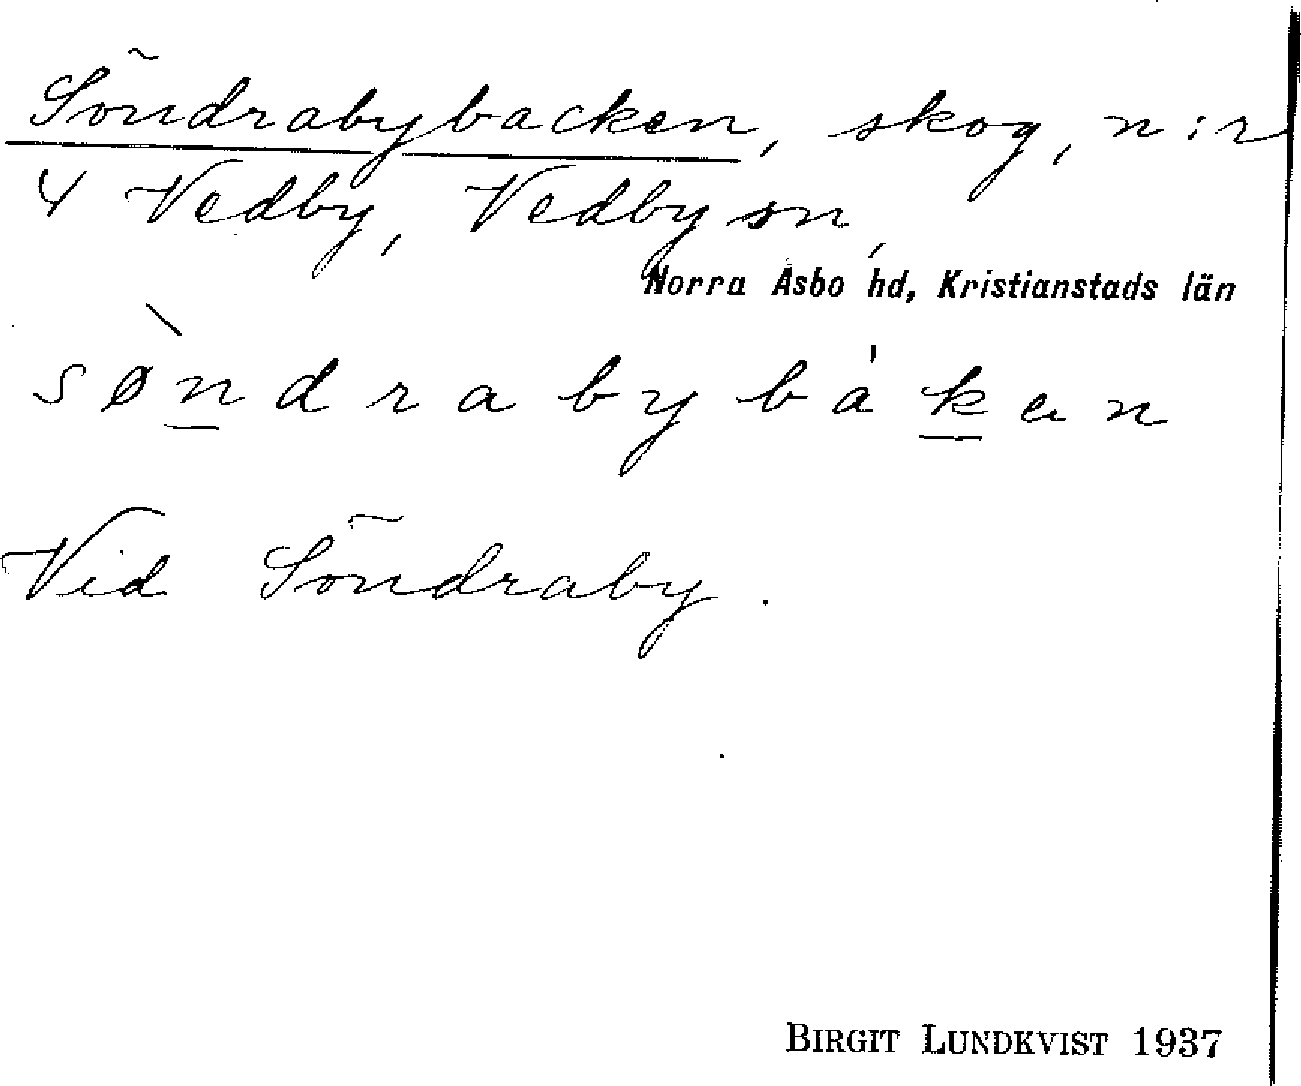 Söndrabybacken, skog, n:r
4 Vedby, Vedby sn,
Norra Åsbo hd, Kristianstads län
sø̀n̲drabybák̲an
Vid Söndraby.
BIRGIT LUNDKVIST 1937